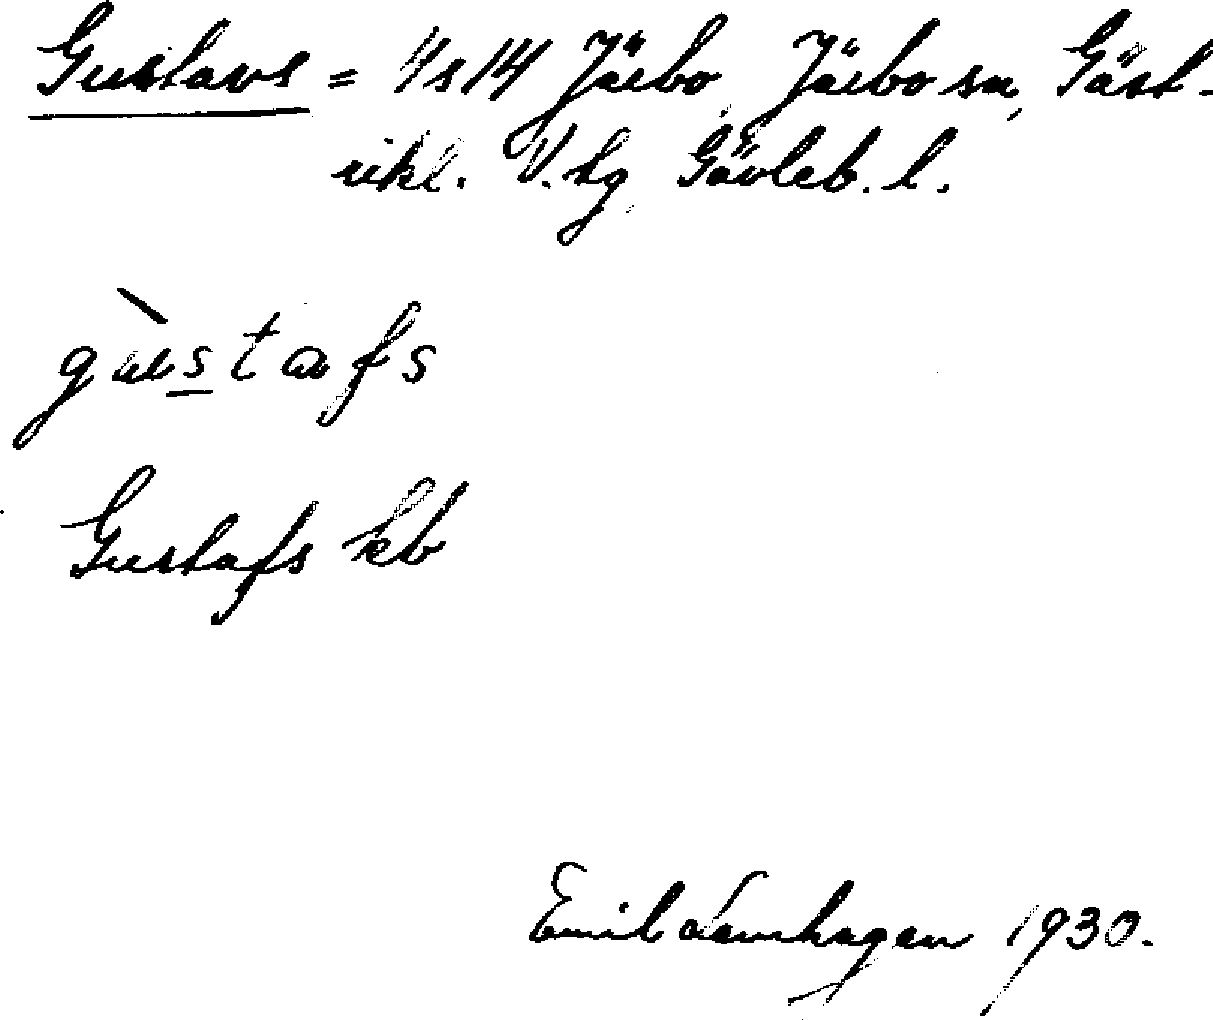 Gustavs = 4s14 Järbo, Järbo sn, Gäst-
rikl. V. hg, Gävleb. l.
gùstafs
Gustafs kb
Emil Lennhagen 1930.